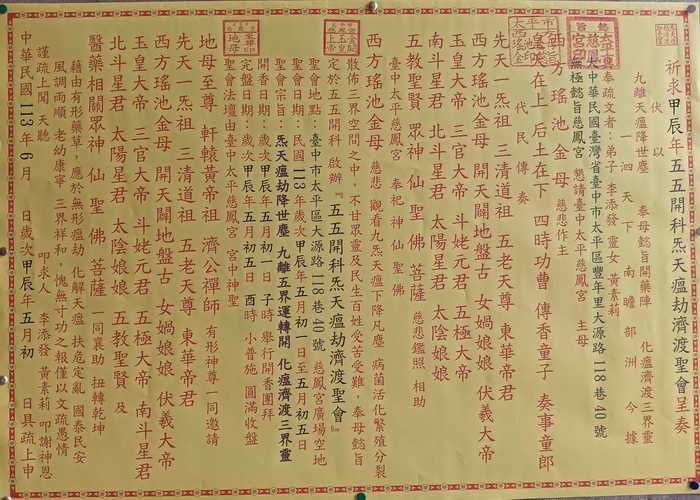 祈求 歲次甲辰年五五開科炁天瘟劫濟渡聖會呈奏
伏以
九離天瘟降世塵 奉母懿旨開藥陣 化瘟濟渡三界靈
一泗天下 南瞻部洲 今據
奉疏文者：弟子 李添發 靈女 黃素莉
大中華民國臺灣省臺中市太平區豐年里大源路118巷40號
無極懿旨慈鳳宮 懇請臺中太平慈鳳宮 主母
西方瑤池金母 慈悲作主
代民傳奏
皇天在上 后土在下 四時功曹 傳香童子 奏事童郎
先天一炁祖 三清道祖 五老天尊 東華帝君
西方瑤池金母 開天闢地盤古 女媧娘娘 伏羲大帝
玉皇大帝 三官大帝 斗姥元君 五極大帝
南斗星君 北斗星君 太陽星君 太陰娘娘
五教聖賢 眾神 仙 聖 佛 菩薩 慈悲鑑照 相助
臺中太平慈鳳宮 奉祀神仙聖佛
西方瑤池金母 慈悲 觀看九炁天瘟下降凡塵 病菌活化繁殖分裂
散佈三界空間之中，不甘眾靈及民生百姓受苦受難，奉母懿旨
定於五五開科 啟辦『五五開科炁天瘟劫濟渡聖會』
聖會地點：臺中市太平區大源路118巷40號 慈鳳宮廣場空地
聖會日期：民國113年歲次甲辰年五月初一日至五月初五日
聖會宗旨：炁天瘟劫降世塵 九離五界運轉開 化瘟濟渡三界靈
開香日期：歲次甲辰年五月初一 子時 舉行開香團拜
完盤日期：歲次甲辰年五月初五 酉時 小普施 圓滿收盤
聖會法壇由臺中太平慈鳳宮 宮中神聖
地母至尊 軒轅黃帝祖 濟公禪師 有形神尊一同邀請
先天一炁祖 三清道祖 五老天尊 東華帝君
西方瑤池金母 開天闢地盤古 女媧娘娘 伏羲大帝
玉皇大帝 三官大帝 斗姥元君 五極大帝 南斗星君
北斗星君 太陽星君 太陰娘娘 五教聖賢 及
醫藥相關眾神 仙 聖 佛 菩薩 一同襄助 扭轉乾坤
藉由有形藥草，應於無形瘟劫 化解天瘟 扶危定亂 國泰民安
風調雨順 老幼康寧 三界祥和，愧無寸功之報僅以文疏愚情
謹疏上聞 天聽 叩求人 李添發 黃素莉 叩謝神恩
中華民國113年6月 日歲次甲辰年五月初 日具疏上申